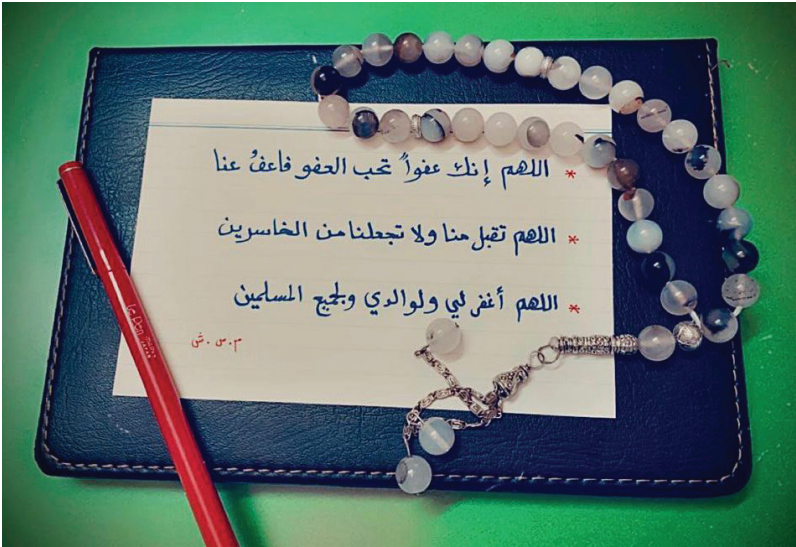 * اللهم إنك عفواً تحب العفو فاعفُ عنا
* اللهم تقبل منا ولا تجعلنا من الخاسرين
* اللهم أغفر لي ولوالدي ولجميع المسلمين
م.س.ش
Le Pen